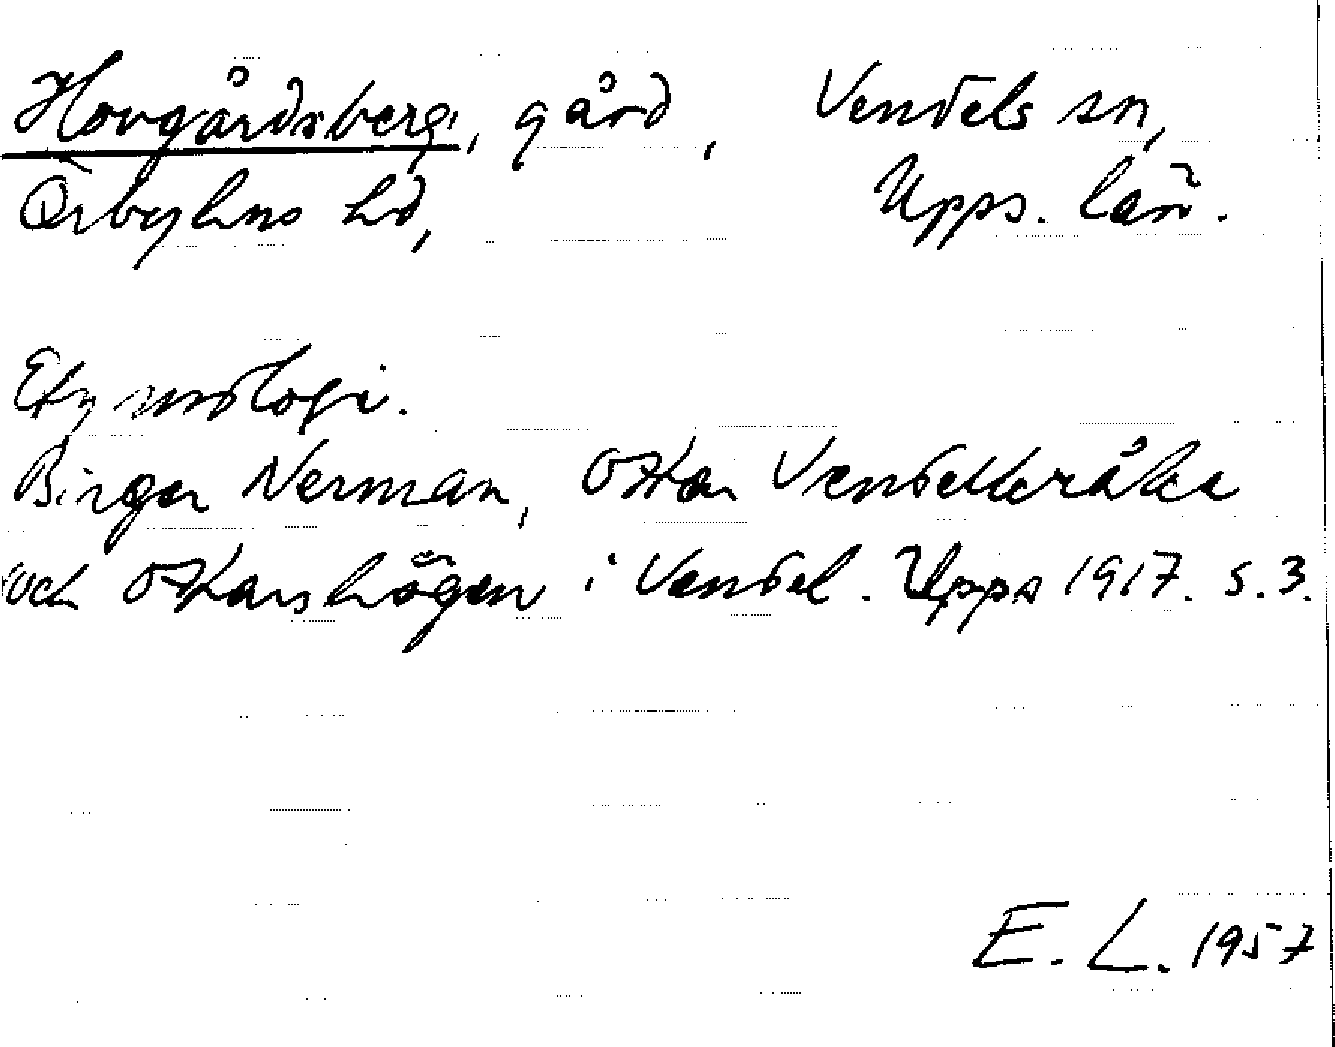 Hovgårdsberg, gård, Vendels sn,
Örbyhus hd, Upps. län.
Etymologi.
Birger Nerman, Ottar Vendelkråka
och Ottarshögen i Vendel. Upps 1917. s. 3.
E. L. 1957